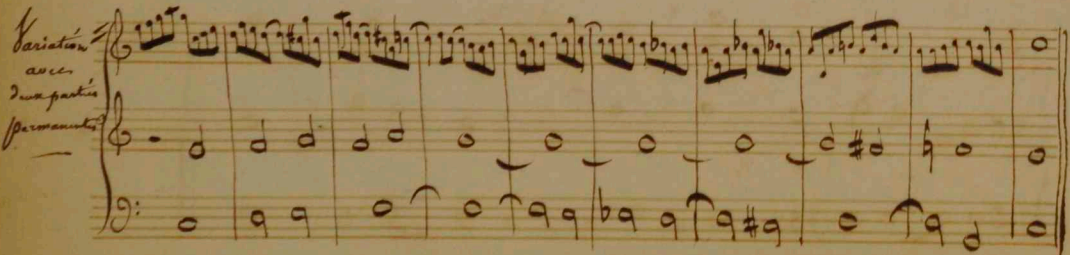 Variation
avec
deux parties
permanentes